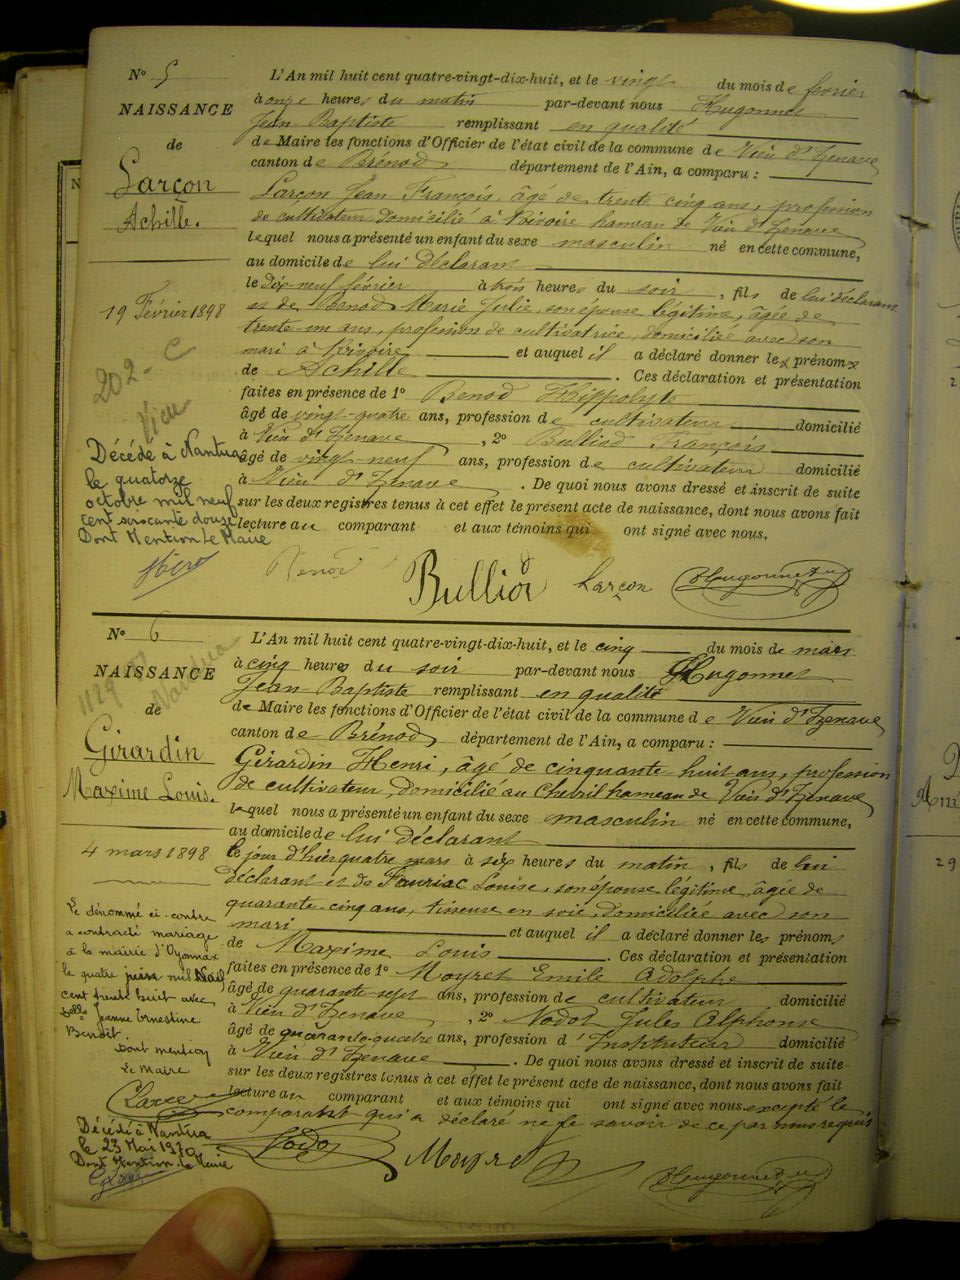 N° 5
NAISSANCE
de
Larçon
Achille.
19 Février 1898
202 -
Vieu
Décédé à Nantua
le quatorze
octobre mil neuf
cent soixante douze
Dont Mention le Maire
L'An mil huit cent quatre-vingt-dix-huit, et le vingt du mois de février
à onze heures du matin par-devant nous Hugonnet
Jean-Baptiste remplissant en qualité
de Maire les fonctions d'Officier de l'état civil de la commune de Vieu d'Izenave
canton de Brénod département de l'Ain, a comparu :
Larçon Jean François, âgé de trente cinq ans, profession
de cultivateur, domicilié à Rivoire hameau de Vieu d'Izenave
lequel nous a présenté un enfant du sexe masculin né en cette commune,
au domicile de lui déclarant
le dix-neuf février à trois heures du soir, fils de lui déclarant
et de Benod Marie Julie, son épouse légitime, âgée de
trente-un ans, profession de cultivatrice, domiciliée avec son
mari à Rivoire et auquel il a déclaré donner le prénom
de Achille. Ces déclaration et présentation
faites en présence de 1° Benod Hippolyte
âgé de vingt-quatre ans, profession de cultivateur domicilié
à Vieu d'Izenave, 2° Bulliod François
âgé de vingt-neuf ans, profession de cultivateur domicilié
à Vieu d'Izenave. De quoi nous avons dressé et inscrit de suite
sur les deux registres tenus à cet effet le présent acte de naissance, dont nous avons fait
lecture au comparant et aux témoins qui ont signé avec nous.
Benod Bulliod Larçon Hugonnet
N° 6
NAISSANCE
de
Girardin
Maxime Louis.
4 mars 1898
1129
Nantua
Le dénommé ci-contre
a contracté mariage
à la mairie d'Oyonnax
le quatre juin mil neuf
cent trente huit avec
Jeanne Ernestine
Benoit
Dont mention
Le Maire
Décédé à Nantua
le 23 Mai 1970
Dont Mention le Maire
L'An mil huit cent quatre-vingt-dix-huit, et le cinq du mois de mars
à cinq heures du soir par-devant nous Hugonnet
Jean-Baptiste remplissant en qualité
de Maire les fonctions d'Officier de l'état civil de la commune de Vieu d'Izenave
canton de Brénod département de l'Ain, a comparu :
Girardin Henri, âgé de cinquante-huit ans, profession
de cultivateur, domicilié au Chevril hameau de Vieu d'Izenave
lequel nous a présenté un enfant du sexe masculin né en cette commune,
au domicile de lui déclarant
le jour d'hier quatre mars à six heures du matin, fils de lui
déclarant et de Fauriac Louise, son épouse légitime, âgée de
quarante-cinq ans, tisseuse en soie, domiciliée avec son
mari et auquel il a déclaré donner les prénoms
de Maxime Louis. Ces déclaration et présentation
faites en présence de 1° Moyret Emile Adolphe
âgé de quarante-sept ans, profession de cultivateur domicilié
à Vieu d'Izenave, 2° Nodot Jules Alphonse
âgé de quarante-quatre ans, profession d'Instituteur domicilié
à Vieu d'Izenave. De quoi nous avons dressé et inscrit de suite
sur les deux registres tenus à cet effet le présent acte de naissance, dont nous avons fait
lecture au comparant et aux témoins qui ont signé avec nous excepté le
comparant qui a déclaré ne le savoir de ce par nous requis
Nodot Moyret Hugonnet